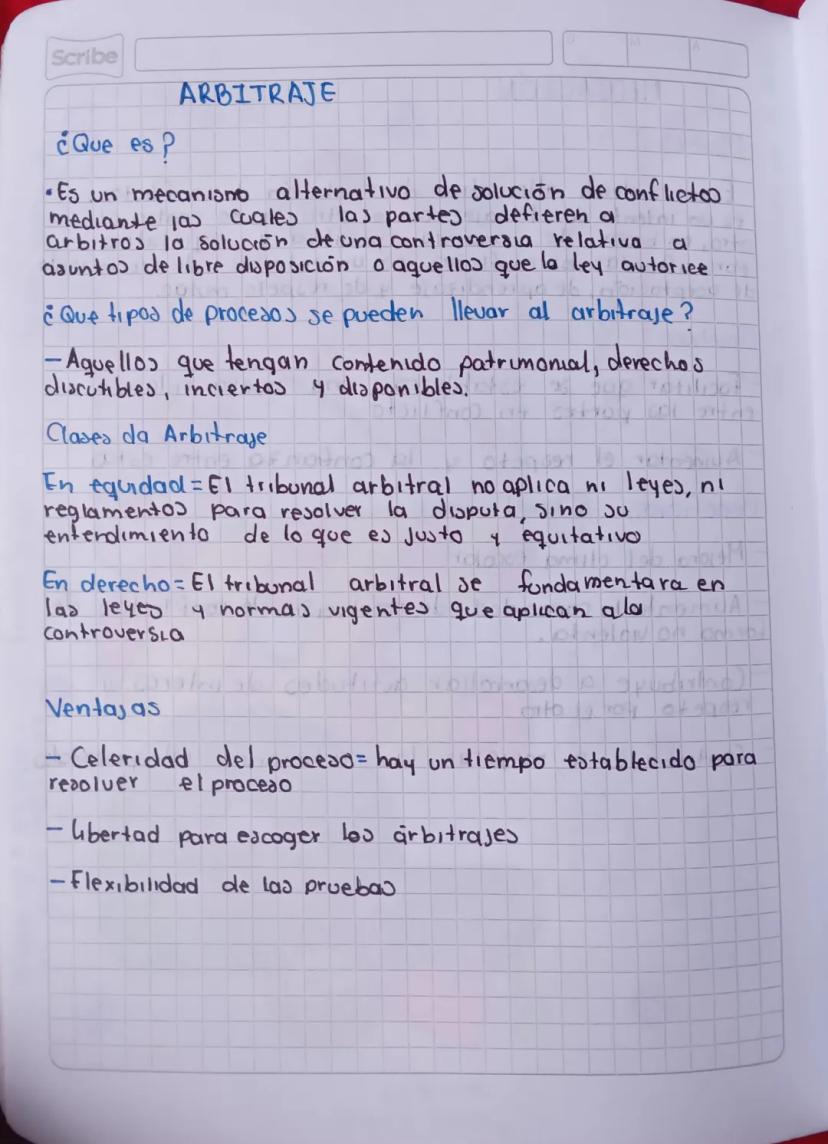 Scribe
ARBITRAJE
¿Que es?
•Es un mecanismo alternativo de solución de conflictos
mediante las cuales las partes defieren a
arbitros la solución de una controversia relativa a
asuntos de libre disposición o aquellos que la ley autorice
¿Que tipos de procesos se pueden llevar al arbitraje?
-Aquellos que tengan contenido patrimonial, derechos
discutibles, inciertos y disponibles.
Clases da Arbitraje
En equidad = El tribunal arbitral no aplica ni leyes, ni
reglamentos para resolver la disputa, sino su
entendimiento de lo que es justo y equitativo
En derecho = El tribunal arbitral se fundamentara en
las leyes y normas vigentes que aplican a la
controversia
Ventajas
- Celeridad del proceso = hay un tiempo establecido para
resolver el proceso
- libertad para escoger los árbitrajes
- Flexibilidad de las pruebas